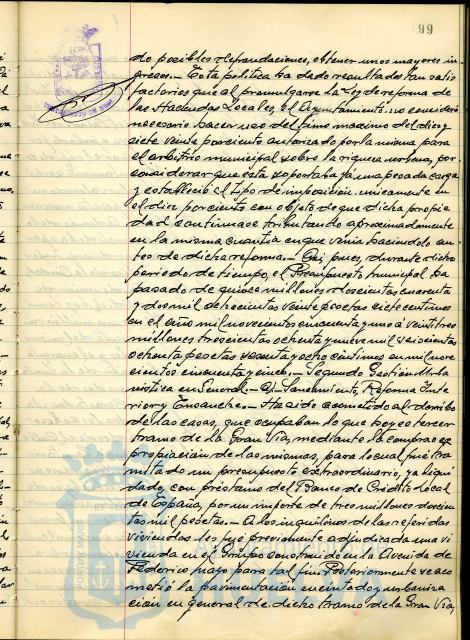 99
do posibles defraudaciones, obtener unos mayores in-
gresos.- Esta politica ha dado resultados tan satis
factorios que al promulgarse la Ley de reforma de
las Haciendas Locales, el Ayuntamiento no consideró
necesario hacer uso del limo maximo del diez y
siete veinte por ciento autorizado por la misma para
el arbitrio municipal sobre la riqueza urbana, por
considerar que ésta soportaba ya una pesada carga
y estableció el tipo de imposición unicamente en
el diez por ciento con objeto de que dicha propie
dad continuase tributando aproximadamente
en la misma cuantia en que venia haciendolo an-
tes de dicha reforma.- Asi pues, durante dicho
periodo de tiempo, el Presupuesto municipal ha
pasado de quince millones doscientas cuarenta
y dos mil ochocientas veinte pesetas siete centimos
en el año mil novecientos cincuenta y uno á veintitres
millones trescientas ochenta y nueve mil seiscientas
ochenta pesetas sesenta y ocho centimos en mil nove
cientos cincuenta y cinco.- Segundo Gestion Urba
nistica en General.- a).- Saneamiento, Reforma Inte
rior y Ensanche.- Ha sido acometido al derribo
de las casas, que ocupaban lo que hoy es tercer
tramo de la Gran Via, mediante la compra o ex
propiación de las mismas, para lo cual fué tra
mitado un presupuesto extraordinario, ya liqui
dado, con préstamo del Banco de Crédito Local
de España, por un importe de tres millones doscien
tas mil pesetas.- A los inquilinos de las referidas
viviendas les fué previamente adjudicada una vi
vienda en el Grupo construido en la Avenida de
Federico Mayo para tal fin. Posteriormente se aco
metió la pavimentación encintado y urbaniza
ción en general de dicho tramo de la Gran Via,